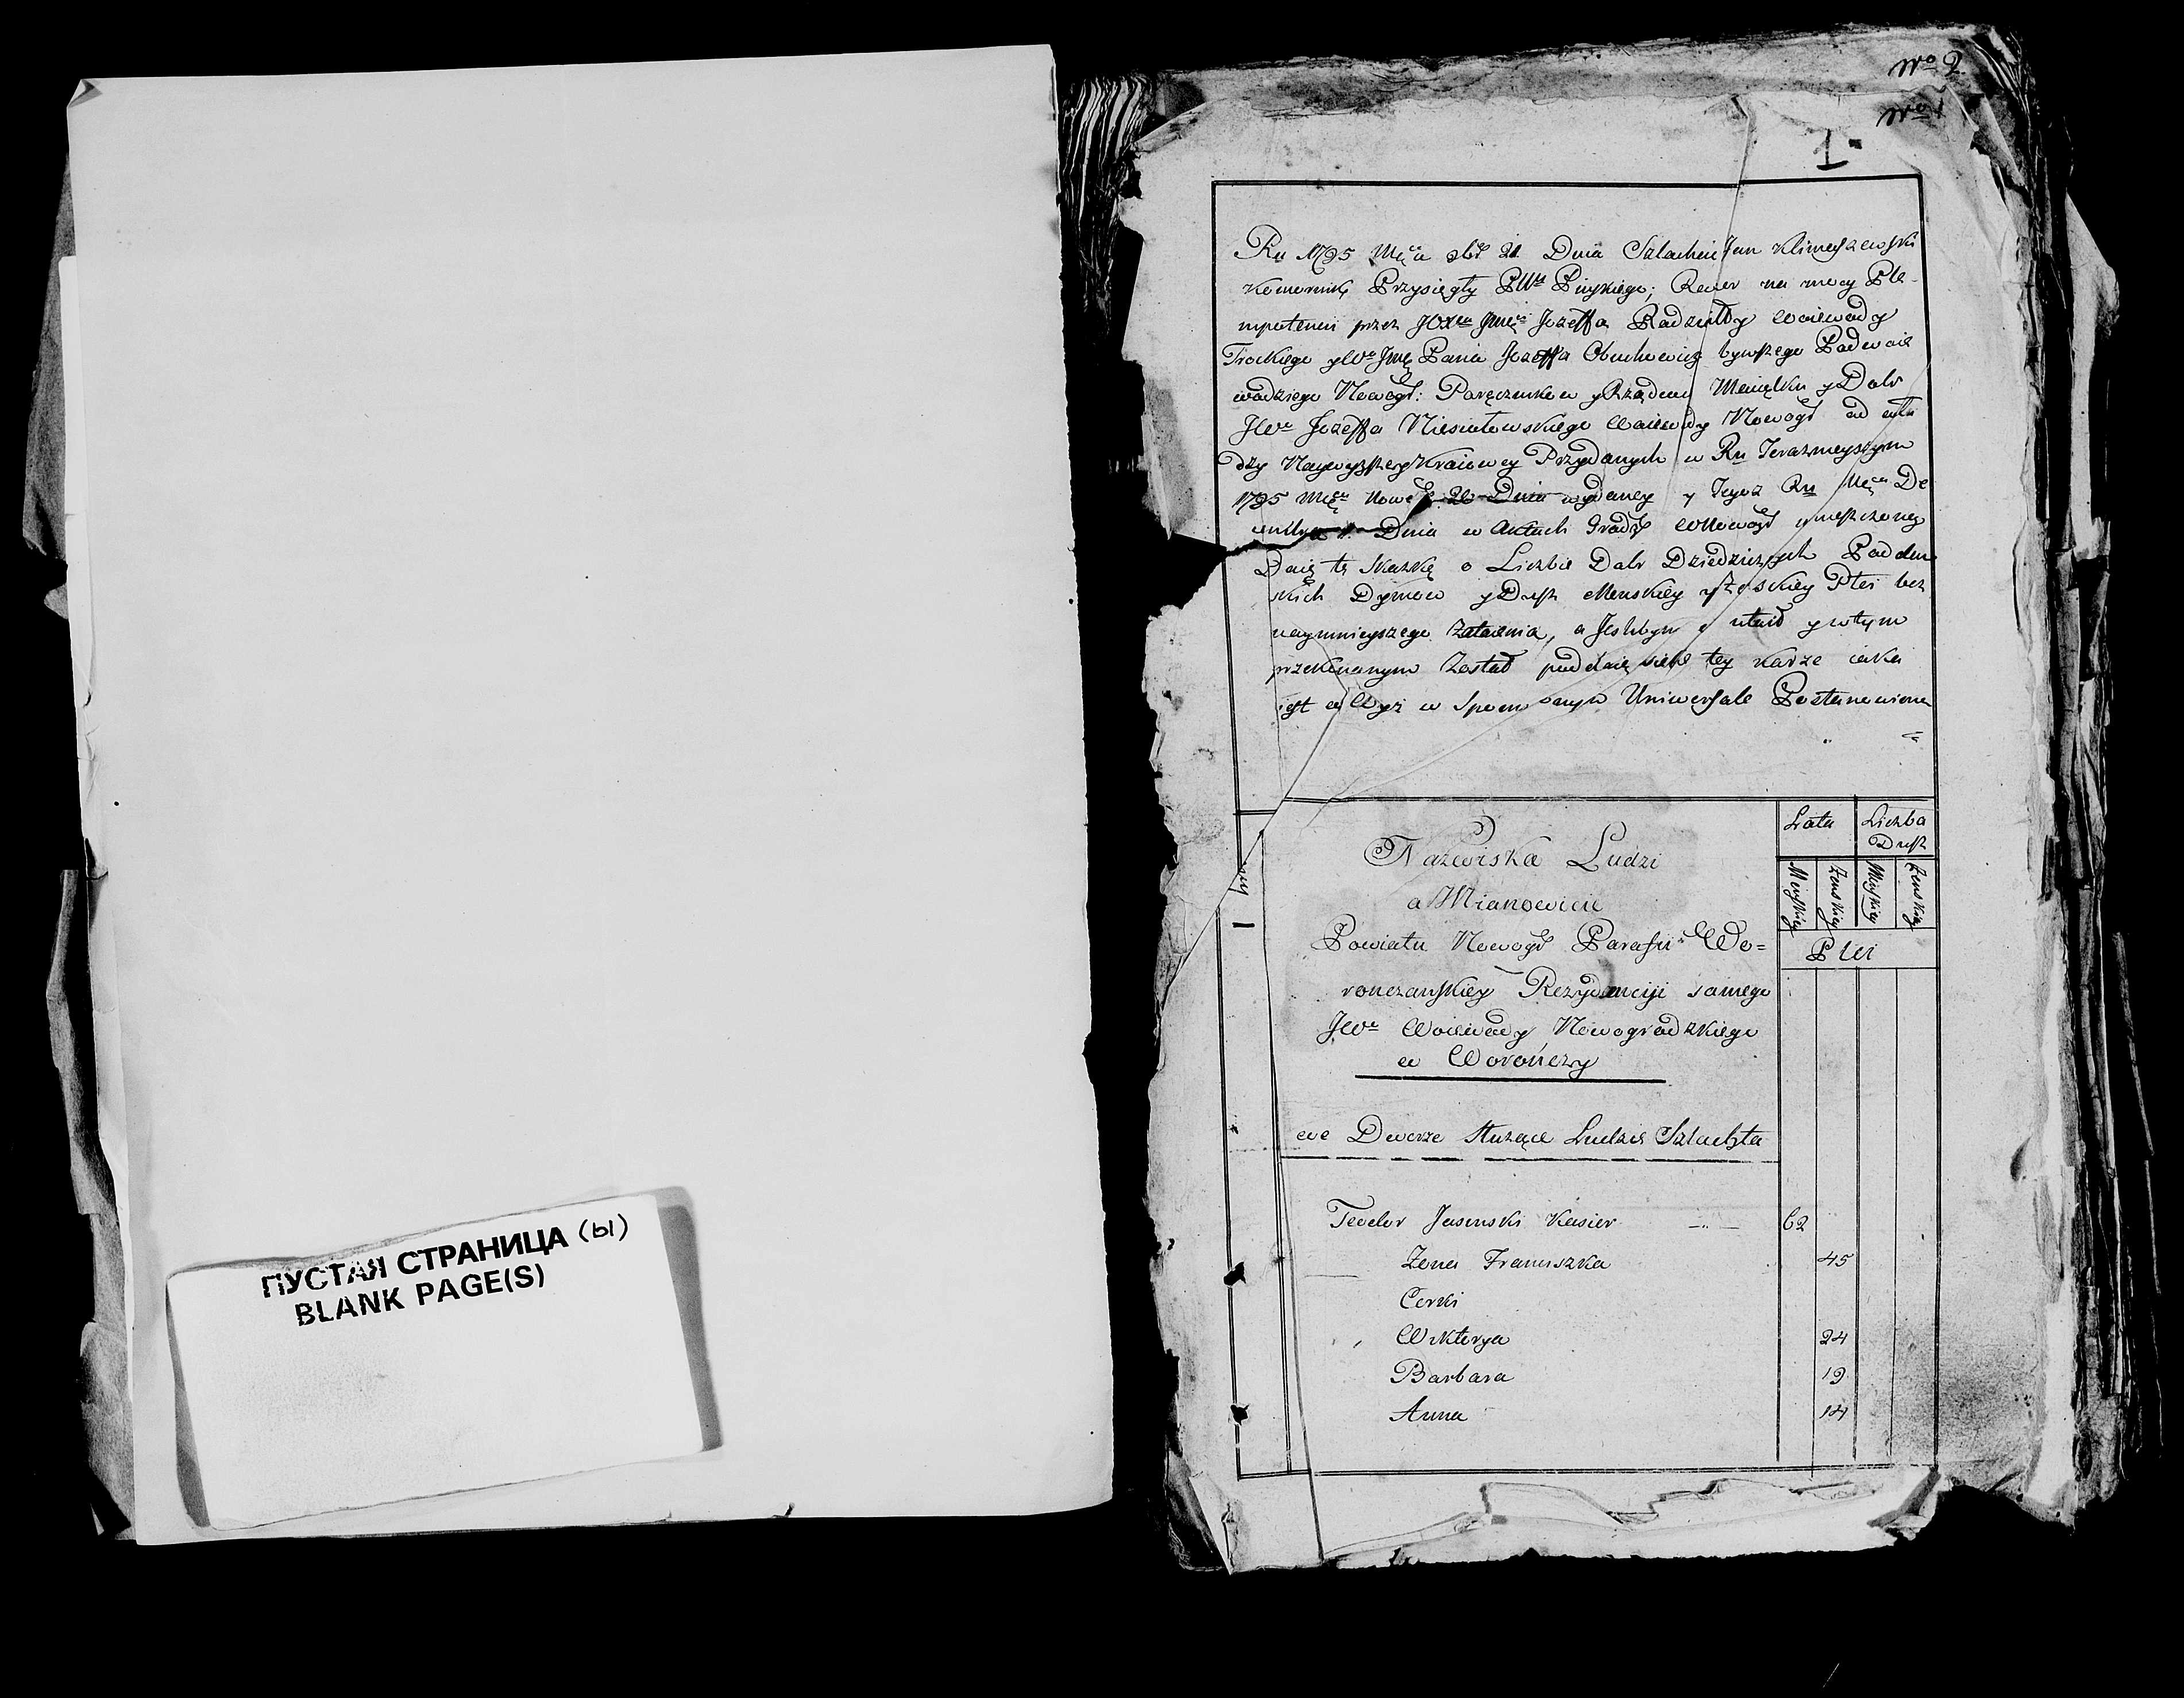 ПУСТАЯ СТРАНИЦА (ы)
BLANK PAGE(S)
No 2
No 1
1
Ru 1795 Mca Xbr 21 Dnia Szlachcic Jan Klimaszewski
Komornik Przysięgły PWtu Pinskiego; Rewer na mocy Ple-
nipotencii przez JOXcia Jmci Jozeffa Radziwiłły Woiewody
Trockiego y Wo Jmc Pana Jozeffa Obuchowicza bywszego Podwoie
wodziego Nowogr: Poręcznikow y Rządcow Maiątku y Dobr
JWo Jozeffa Niesiołowskiego Woiewody Nowogr od wła
dzy Naywyzszey Kraiowey Przydanych w Ru Teraznieyszym
1795 Mca Nowe 20 Dnia wydaney y Tegoż Ru Mca De
cembra 1 Dnia w Aktach Grodz WNowogr umieszczoney
Daię tę skazkę o Liczbie Dobr Dziedzicznych Poddan
skich Dymow y Dusz Menskiey y Żenskiey Płci bez
naymnieyszego Zataienia, a Jeslibym utaił y wtym
przekonanym Został poddaię siebie tey karze iaka
iest w Wyż w Spomnionym Uniwersale Postanowiona
Nazwiska Ludzi
a Mianowicie
Powiatu Nowogr Parafii Wo=
ronczanskiey Rezydencyi samego
JWo Woiewody Nowogrodzkiego
w Worończy
Lata
Liczba
Dusz
Menskiey
Zenskiey
Menskiey
Zenskiey
Płci
we Dworze Służące Ludzie Szlachta
Teodor Jasinski Kasier 62
Zona Franciszka 45
Corki
Wiktorya 24
Barbara 19
Anna 14